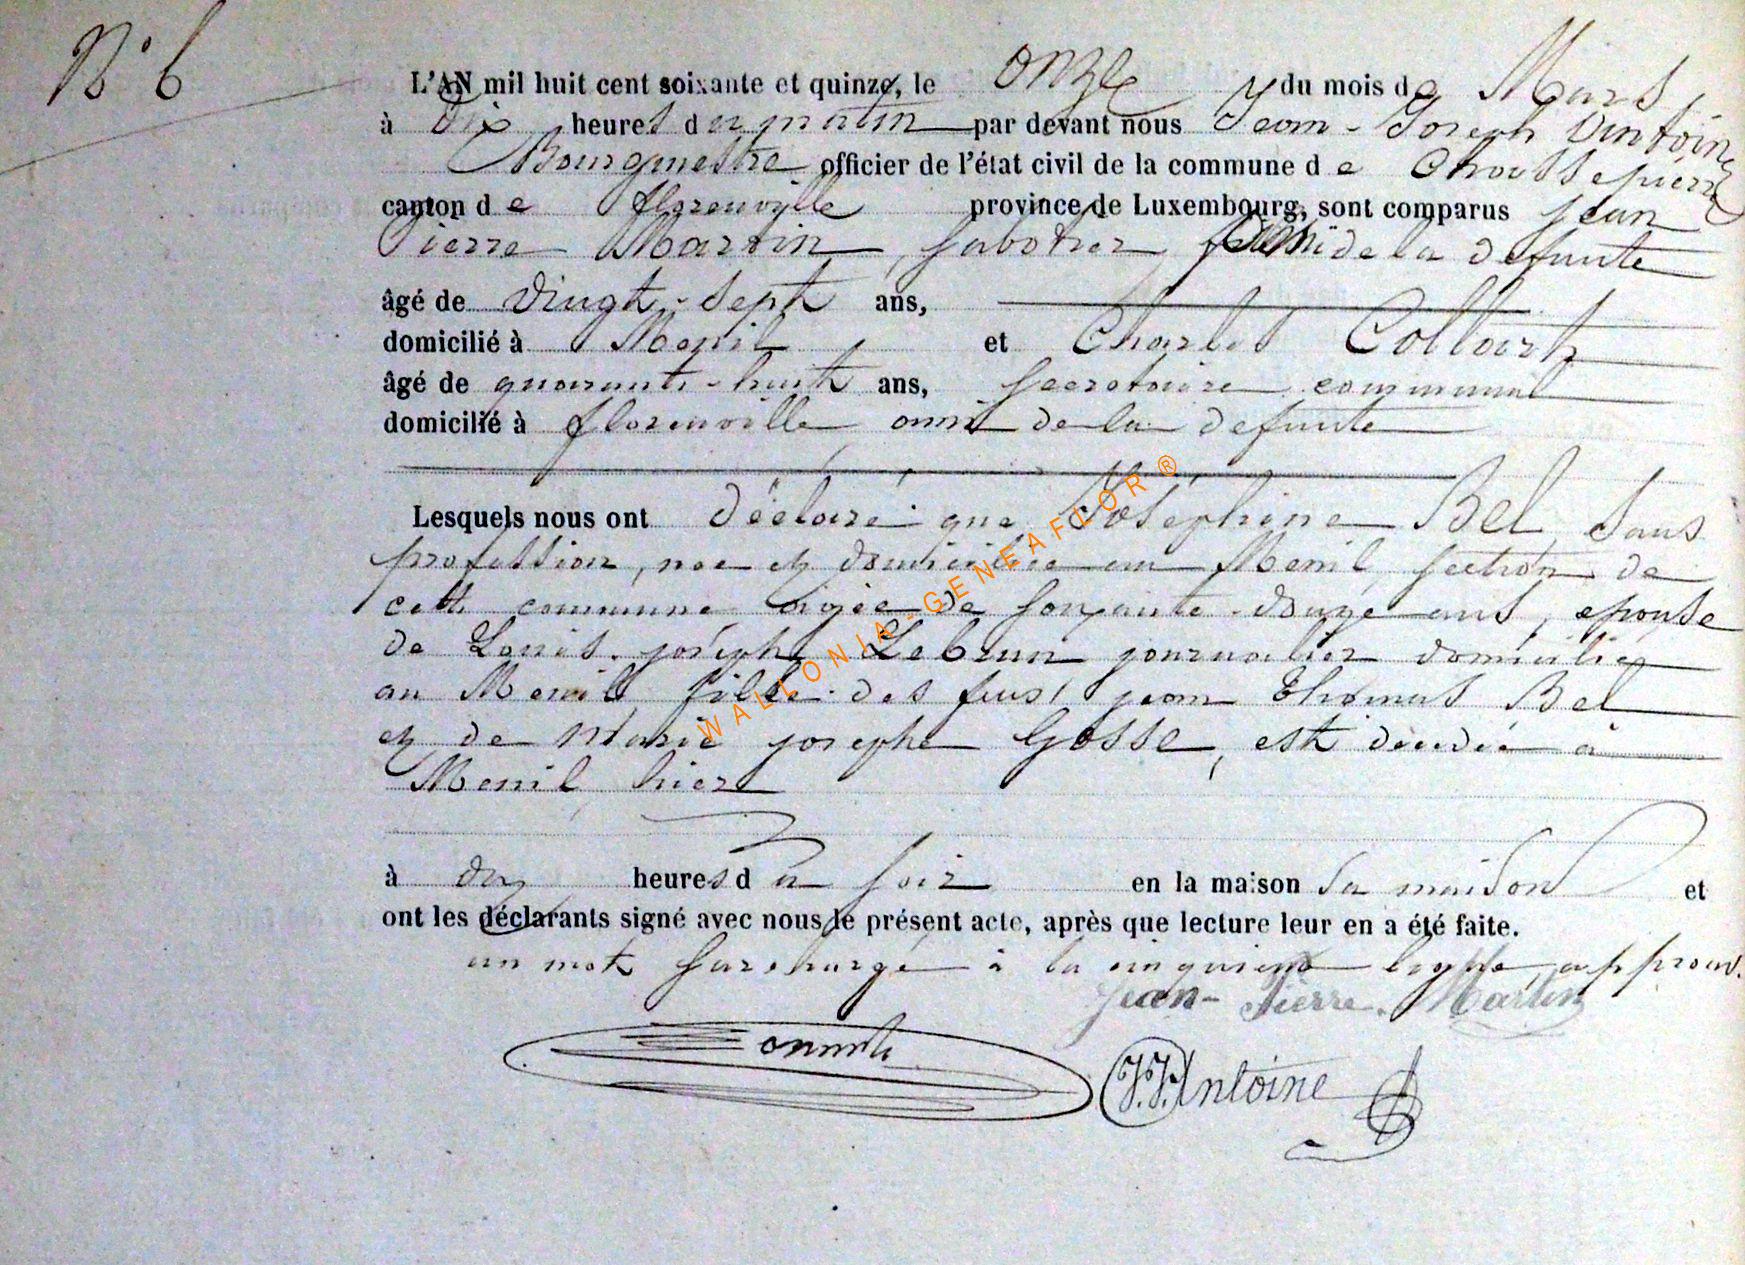 N° 6
L'AN mil huit cent soixante et quinze, le onze du mois de Mars
à dix heures du matin par devant nous Jean-Joseph Antoine
Bourgmestre officier de l'état civil de la commune de Chassepierre
canton de florenville province de Luxembourg, sont comparus jean
Pierre Martin, sabotier, ami de la defunte
âgé de vingt-sept ans,
domicilié à Menil et Charles Collard
âgé de quarante-huit ans, secretaire communal
domicilié à florenville ami de la defunte
Lesquels nous ont déclaré que Joséphine Bel sans
profession, née et domiciliée au Menil section de
cette commune agée de soixante-douze ans, epouse
de Louis joseph Lebrun journalier domicilié
au Menil fille des feus jean thomas Bel
et de Marie josephe Gosse, est décédée à
Menil hier
à dix heures du soir en la maison sa maison et
ont les déclarants signé avec nous le présent acte, après que lecture leur en a été faite.
un mot surchargé à la cinquième ligne, approuv.
Jean-Pierre Martin
J.J. Antoine
WALLONIA-GENEAFLOR ®